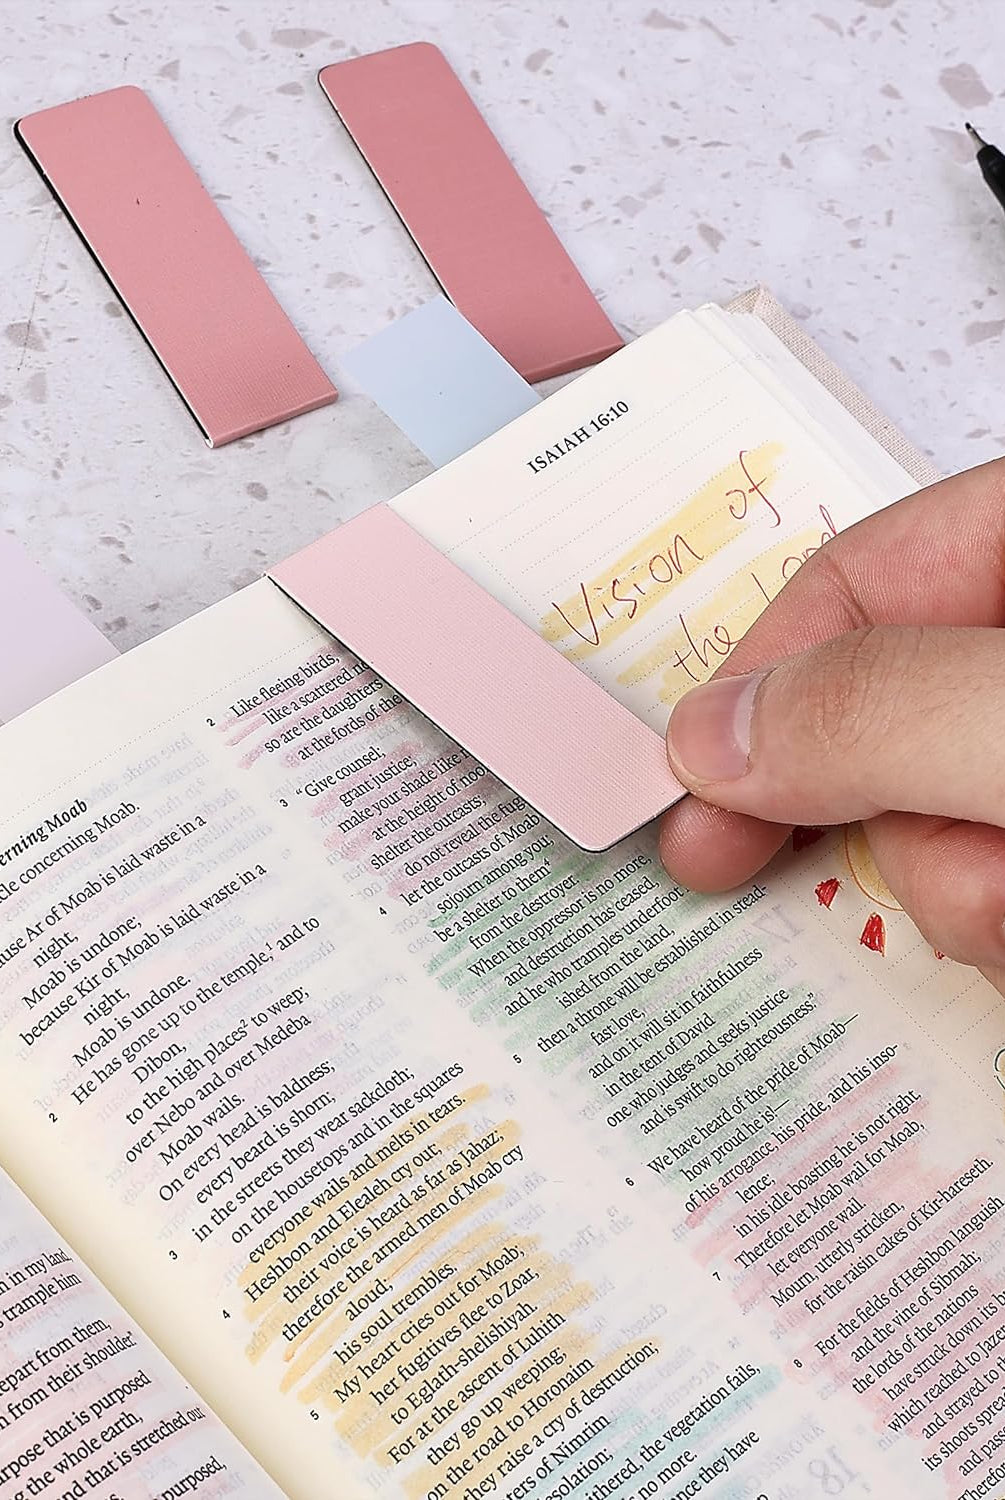 ISAIAH 16:10
Vision of
the Lord
erning Moab
cle concerning Moab.
ause Ar of Moab is laid waste in a
night,
Moab is undone;
because Kir of Moab is laid waste in a
night,
Moab is undone.
2 He has gone up to the temple,¹ and to
Dibon,
to the high places² to weep;
over Nebo and over Medeba
Moab wails.
On every head is baldness;
every beard is shorn;
3 in the streets they wear sackcloth;
on the housetops and in the squares
everyone wails and melts in tears.
4 Heshbon and Elealeh cry out;
their voice is heard as far as Jahaz;
therefore the armed men of Moab cry
aloud;
his soul trembles.
5 My heart cries out for Moab;
her fugitives flee to Zoar,
to Eglath-shelishiyah.
For at the ascent of Luhith
they go up weeping;
on the road to Horonaim
they raise a cry of destruction;
ters of Nimrim
solation;
ithered, the vegetation fails,
is no more.
ance they have
2 Like fleeing birds,
like a scattered ne
so are the daughters
at the fords of the
3 “Give counsel;
grant justice;
make your shade like n
at the height of noon
shelter the outcasts;
do not reveal the fug
4 let the outcasts of Moab
sojourn among you;
be a shelter to them⁴
from the destroyer.
When the oppressor is no more,
and destruction has ceased,
and he who tramples underfoot
ished from the land,
5 then a throne will be established in stead-
fast love,
and on it will sit in faithfulness
in the tent of David
one who judges and seeks justice
and is swift to do righteousness.”
6 We have heard of the pride of Moab—
how proud he is!—
of his arrogance, his pride, and his inso-
lence;
in his idle boasting he is not right.
7 Therefore let Moab wail for Moab,
let everyone wail.
Mourn, utterly stricken,
for the raisin cakes of Kir-hareseth.
8 For the fields of Heshbon languish
and the vine of Sibmah;
the lords of the nations
have struck down its b
which reached to Jazer
and strayed to the
its shoots sprea
and passe
Therefor
h in my land,
s trample him
epart from them,
n from their shoulder.”
rpose that is purposed
g the whole earth,
nd that is stretched out
purposed,